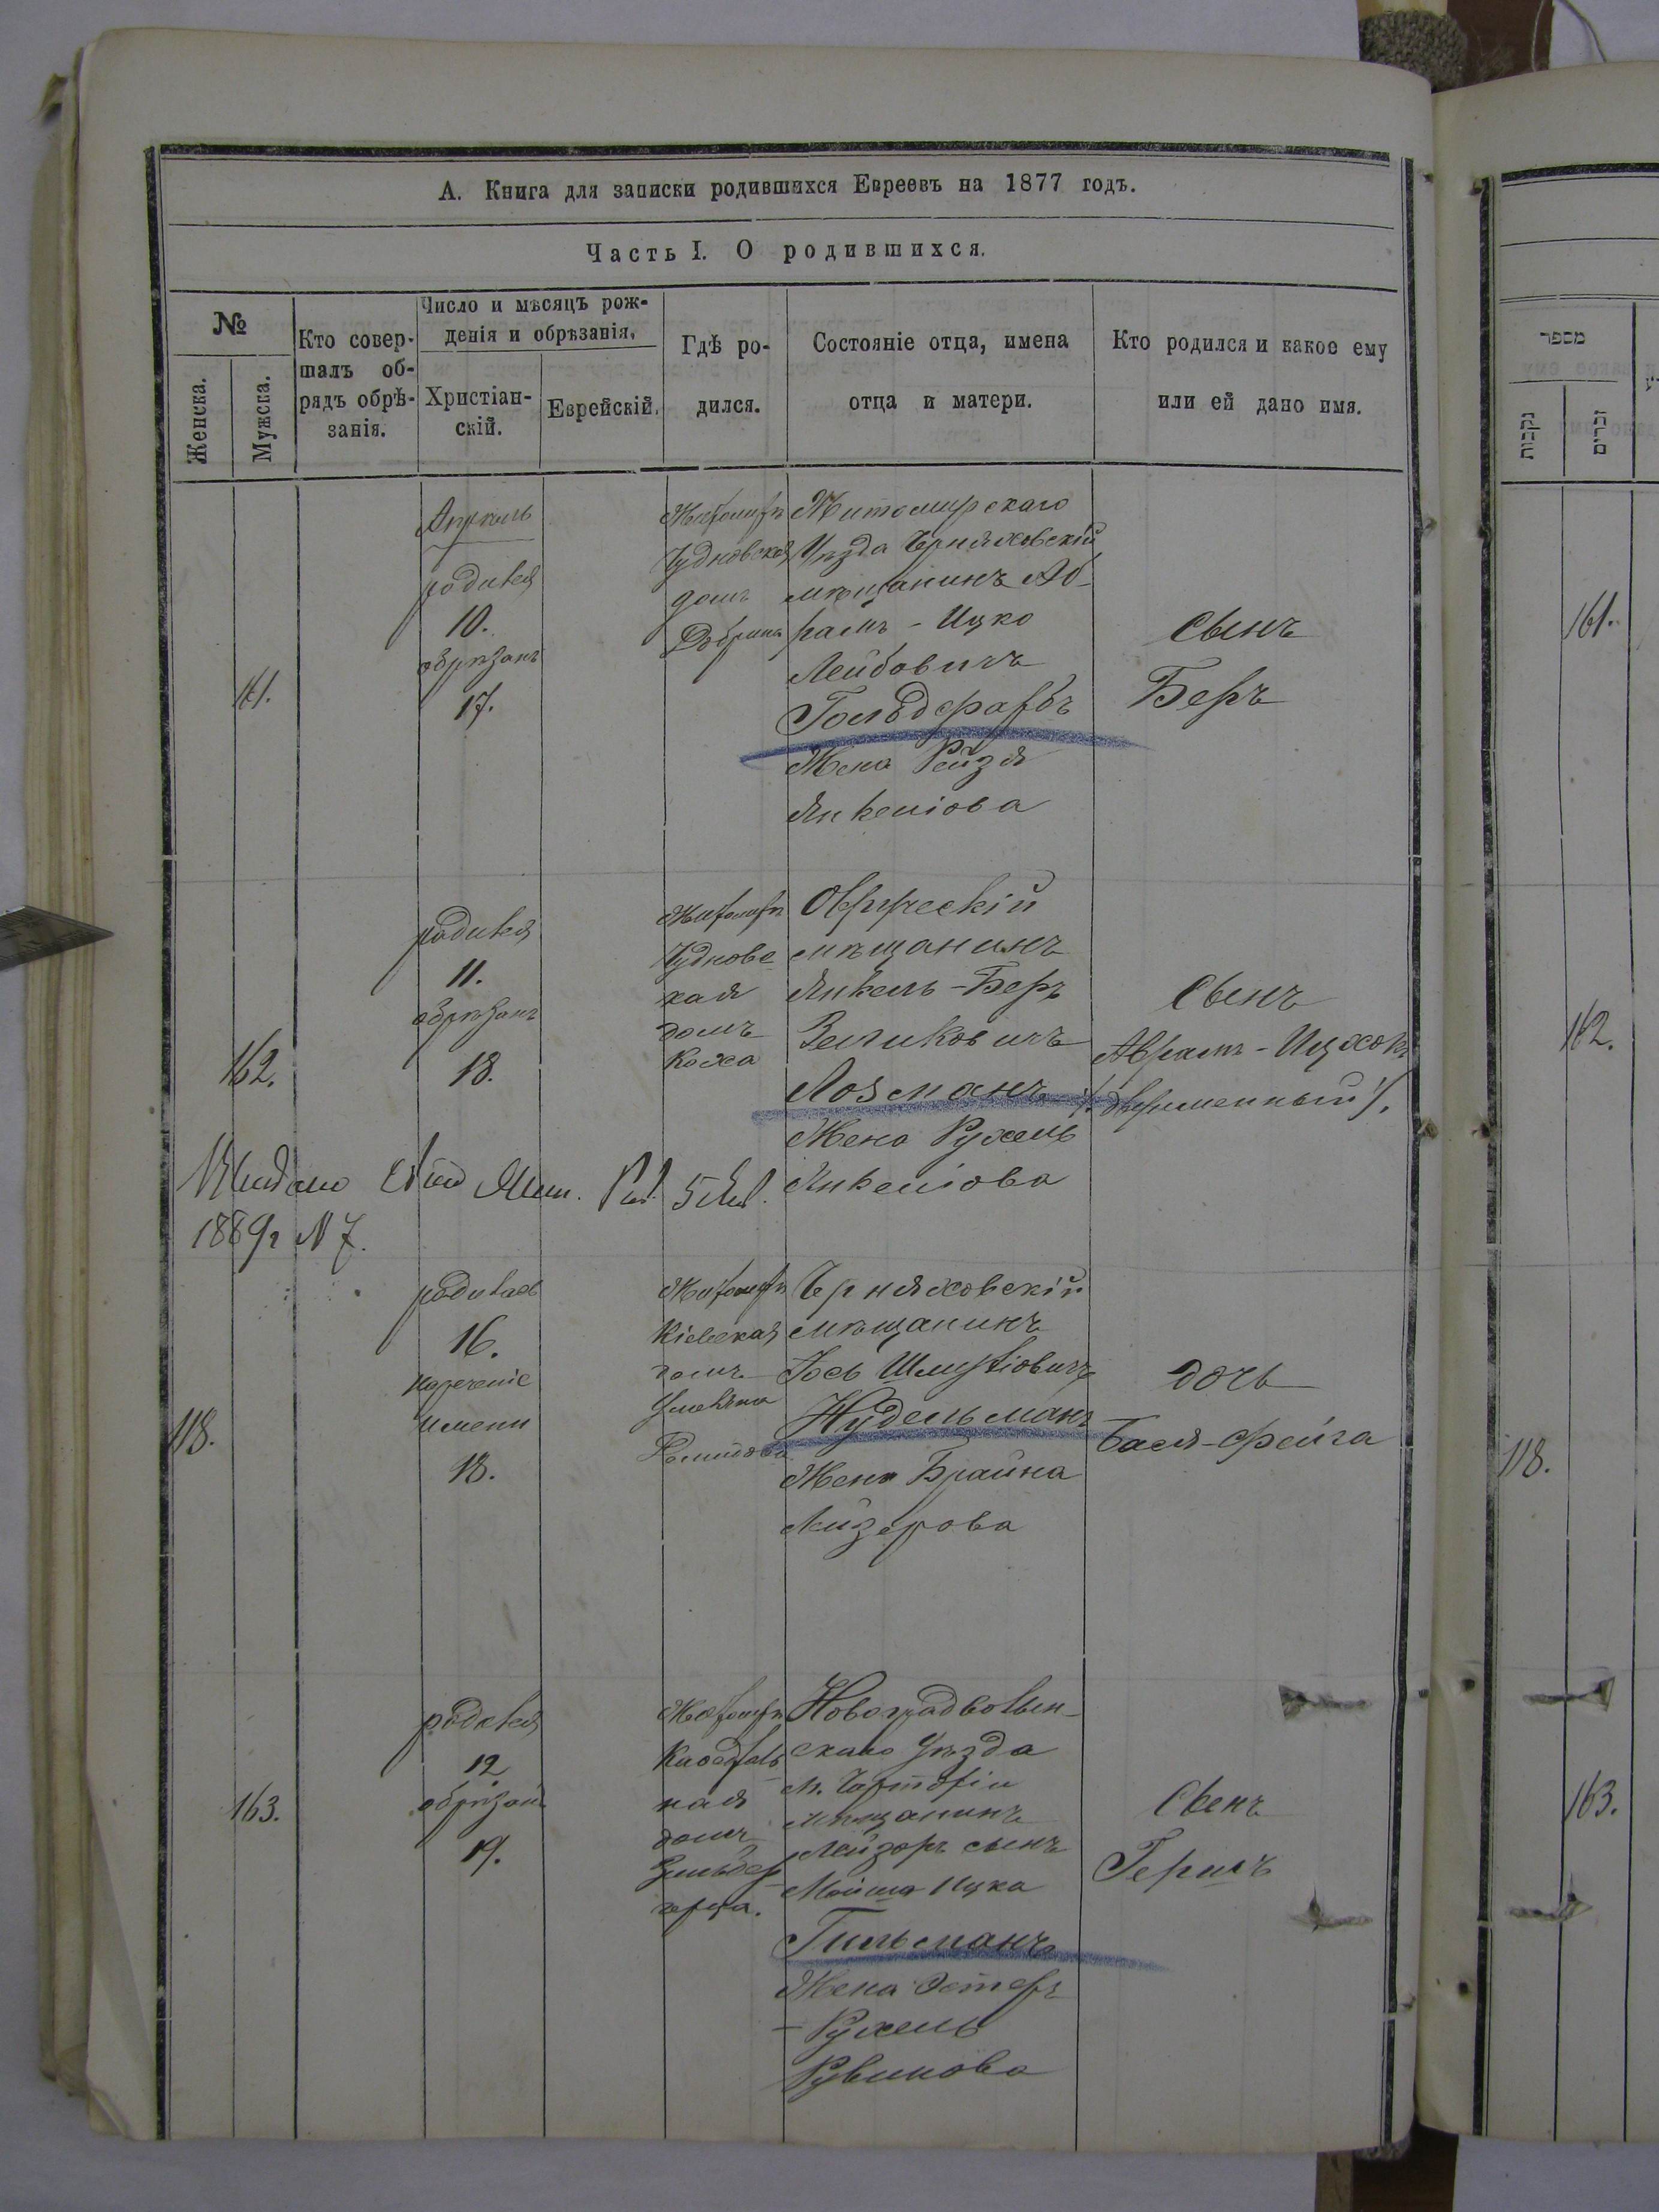 А. Книга для записки родившихся Евреевъ на 1877 годъ.
Часть I. О родившихся.
№
Женска.
Мужска.
Кто совер-
шалъ об-
рядъ обрѣ-
занія.
Число и мѣсяцъ рож-
денія и обрѣзанія.
Христіан-
скій.
Еврейскій.
Гдѣ ро-
дился.
Состояніе отца, имена
отца и матери.
Кто родился и какое ему
или ей дано имя.
161.
Апрель
родился
10.
обрѣзанъ
17.
Житомиръ
Чудновская
домъ
Житомирскаго
Уѣзда Черняховскій
мѣщанинъ Аб-
рамъ - Ицко
Лейбовичъ
Гольдфарбъ
Жена Рейзя
Янкеліова
Сынъ
Беръ
162.
родился
11.
обрѣзанъ
18.
Житомиръ
Чудновс
кая
домъ
Коха
Овручскій
мѣщанинъ
Янкель-Беръ
Зеликовичъ
Лозманъ
Жена Рухель
Янкеліова
Сынъ
Аврамъ-Ицхокъ
1889г N 7.
118.
родилась
16.
нареченіе
имени
18.
Житомиръ
Кіевская
домъ
Черняховскій
мѣщанинъ
Іось Шмуліовичъ
Нудельманъ
Жена Брайна
Лейзерова
дочь
Бася-Фейга
163.
родился
12
обрѣзанъ
19.
Житомиръ
Каѳедраль
ная
домъ
Зильбер
герца.
Новоградволын-
скаго Уѣзда
м.
мѣщанинъ
Лейзоръ сынъ
Мойша Ицка
Гильманъ
Жена Эстеръ
-Рухель
Рувинова
Сынъ
Гершъ
מספר
נקבות
זכרים
161.
162.
118.
163.